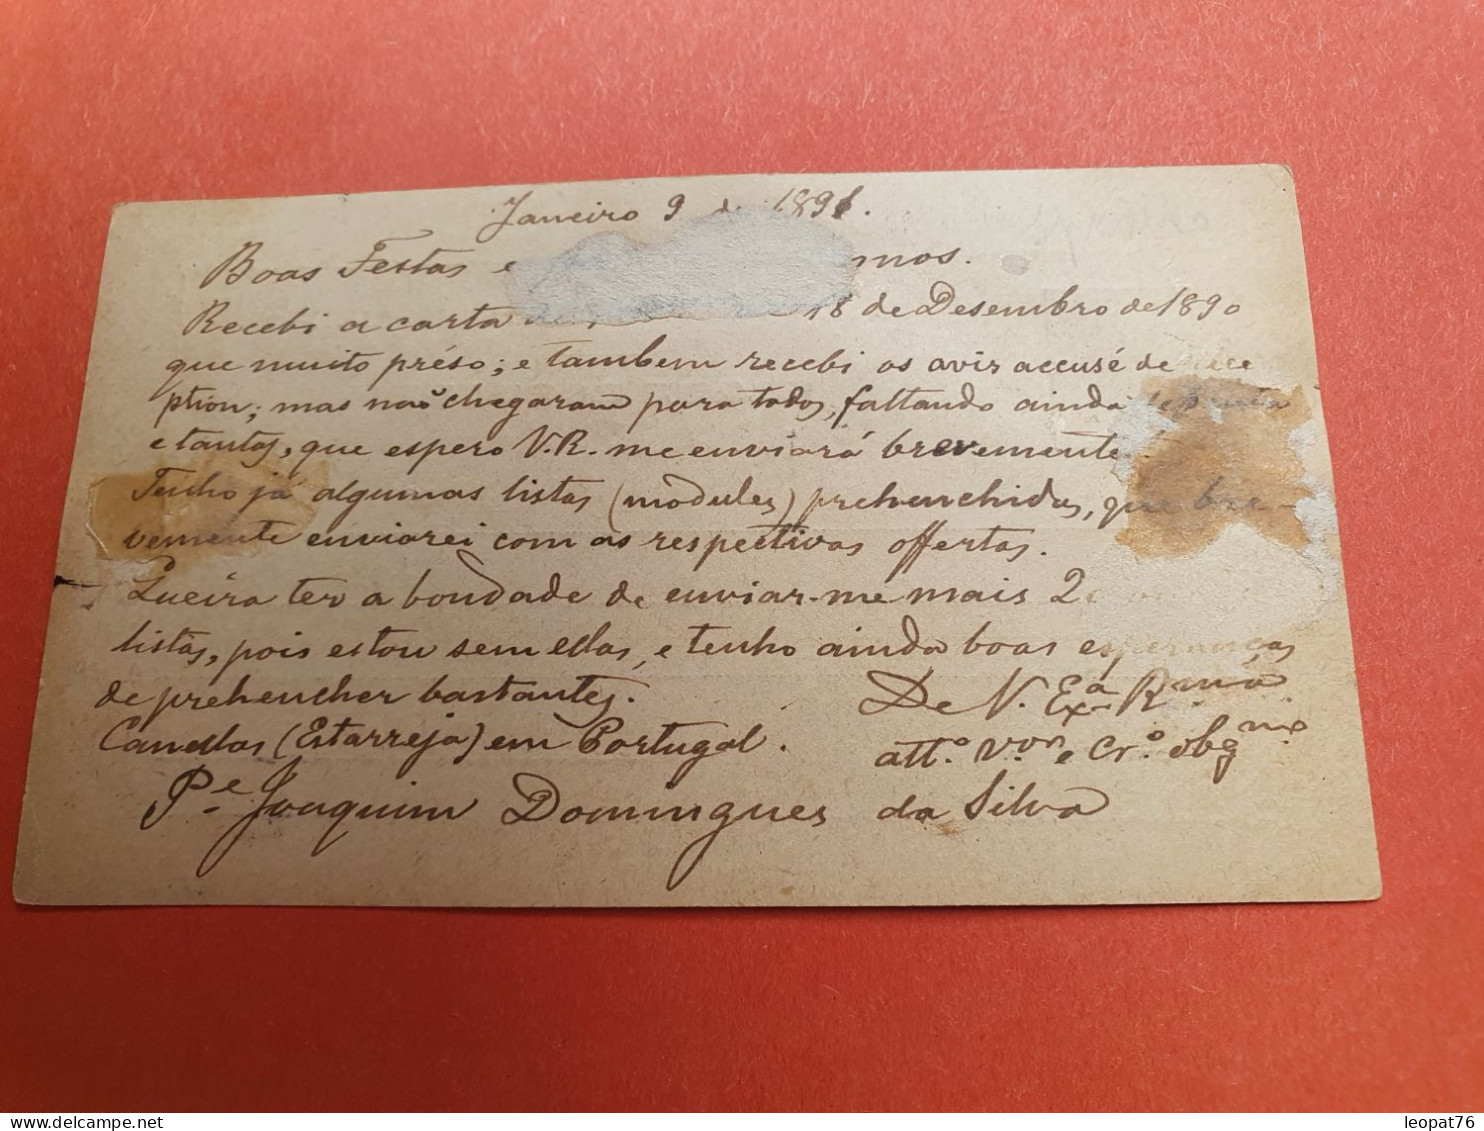 Janeiro 9 de 1891.
Boas Festas e mos.
Recebi a carta de 18 de Desembro de 1890
que muito préso; e tambem recebi os avir accusé de rece
ption; mas não chegaram para todos, faltando ainda
e tantos, que espero V. R. me enviará brevemente.
Tenho já algumas listas (modules) prehenchidas, que bre-
vemente enviarei com as respectivas offertas.
Queira ter a bondade de enviar-me mais 2
listas, pois estou sem ellas, e tenho ainda boas esperanças
de prehencher bastantes.
De V. Exª Rmª
Canellas (Estarreja) em Portugal.
attº. Vor. e Crº. obgmo
Pe Joaquim Domingues da Silva
delcampe.net
leopat76